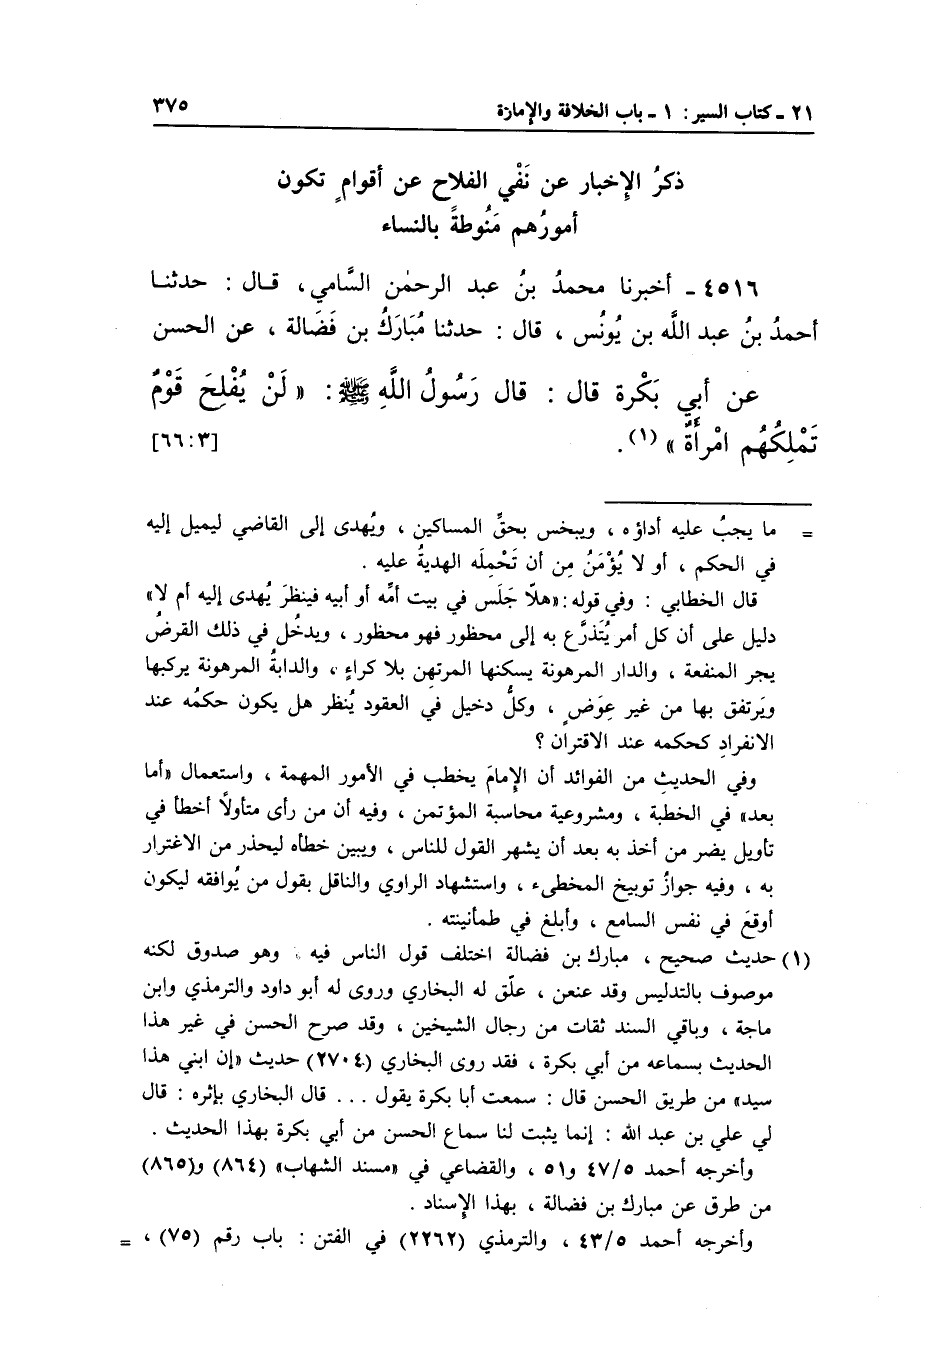 ٢١ ـ كتاب السير : ١ ـ باب الخلافة والإمارة ٣٧٥
ذكرُ الإِخبار عن نَفْي الفلاح عن أقوامٍ تكون
أمورُهم مَنُوطةً بالنساء
٤٥١٦ ـ أخبرنا محمدُ بنُ عبد الرحمٰن السَّامي، قال : حدثنا
أحمدُ بنُ عبد اللَّه بن يُونُس ، قال : حدثنا مُبَارَكُ بن فَضَالة ، عن الحسن
عن أبي بَكْرة قال : قال رَسُولُ اللَّهِ ﷺ : « لَنْ يُفْلِحَ قَوْمٌ
تَمْلِكُهُم امْرأَةٌ » (١) . [٦٦:٣]
= ما يجبُ عليه أداؤه ، ويبخس بحقِّ المساكين ، ويُهدى إلى القاضي ليميل إليه
في الحكم ، أو لا يُؤْمَنُ مِن أن تَحْمِلَه الهديةُ عليه .
قال الخطابي : وفي قوله : «هلّا جَلَس في بيت أمِّه أو أبيه فينظرَ يُهدى إليه أم لا»
دليل على أن كل أمر يُتَذرَّع به إلى محظور فهو محظور ، ويدخُل في ذلك القرضُ
يجر المنفعة ، والدار المرهونة يسكنها المرتهِن بلا كراءٍ ، والدابةُ المرهونة يركبها
ويَرتفق بها من غير عِوَضٍ ، وكلُّ دخيل في العقود يُنظر هل يكون حكمُه عند
الانفرادِ كحكمه عند الاقتران ؟
وفي الحديثِ من الفوائد أن الإمامَ يخطب في الأمور المهمة ، واستعمال «أما
بعد» في الخطبة ، ومشروعية محاسبة المؤتمن ، وفيه أن من رأى متأولاً أخطأ في
تأويل يضر من أخذ به بعد أن يشهر القول للناس ، ويبين خطأه ليحذر من الاغترار
به ، وفيه جوازُ توبيخ المخطىء ، واستشهاد الراوي والناقل بقول من يُوافقه ليكون
أوقعَ في نفس السامع ، وأبلغ في طمأنينته .
(١) حديث صحيح ، مبارك بن فضالة اختلف قول الناس فيه ، وهو صدوق لكنه
موصوف بالتدليس وقد عنعن ، علّق له البخاري وروى له أبو داود والترمذي وابن
ماجة ، وباقي السند ثقات من رجال الشيخين ، وقد صرح الحسن في غير هذا
الحديث بسماعه من أبي بكرة ، فقد روى البخاري (٢٧٠٤) حديث «إن ابني هذا
سيد» من طريق الحسن قال : سمعت أبا بكرة يقول . . . قال البخاري بإثره : قال
لي علي بن عبد الله : إنما يثبت لنا سماع الحسن من أبي بكرة بهذا الحديث .
وأخرجه أحمد ٤٧/٥ و٥١ ، والقضاعي في «مسند الشهاب» (٨٦٤) و(٨٦٥)
من طرق عن مبارك بن فضالة ، بهذا الإسناد .
وأخرجه أحمد ٤٣/٥ ، والترمذي (٢٢٦٢) في الفتن : باب رقم (٧٥) ، =